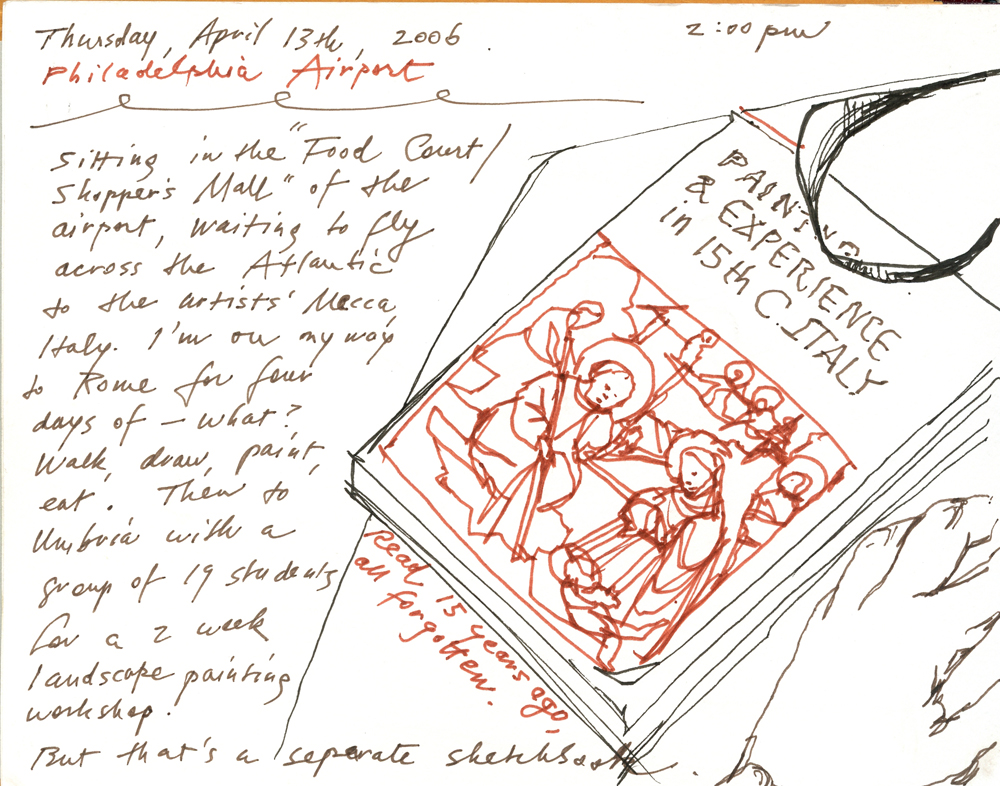 Thursday, April 13th, 2006.
2:00 pm
Philadelphia Airport
Sitting in the "Food Court/
Shopper's Mall" of the
airport, waiting to fly
across the Atlantic
to the artists' Mecca,
Italy. I'm on my way
to Rome for four
days of – what?
Walk, draw, paint,
eat. Then to
Umbria with a
group of 19 students
for a 2 week
landscape painting
workshop.
But that's a separate sketchbook.
PAINTING
& EXPERIENCE
in 15th C. ITALY
Read 15 years ago,
all forgotten.